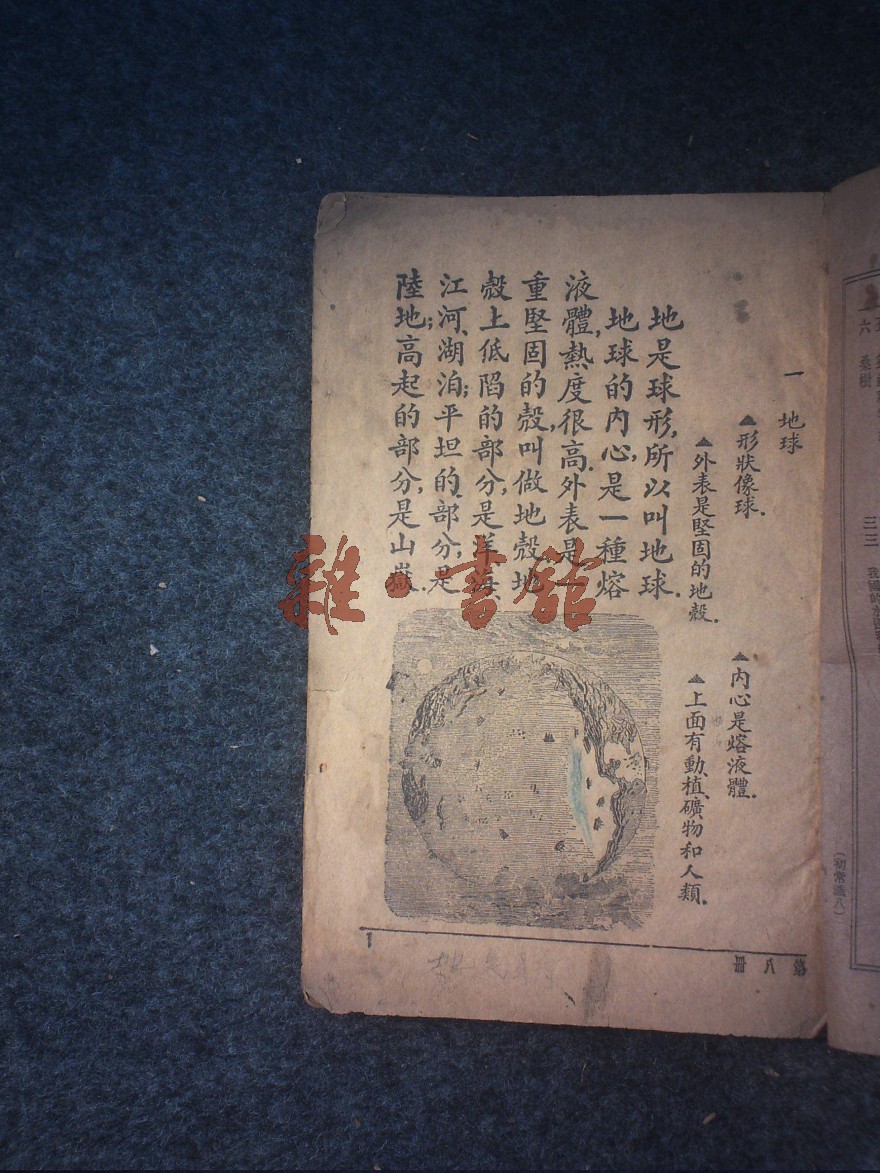 一 地球
▲形狀像球.
▲內心是熔液體.
▲外表是堅固的地殼.
▲上面有動、植、礦物和人類.
地是球形,所以叫地球.
地球的內心,是一種熔
液體,熱度很高.外表是一
重堅固的殼,叫做地殼.地
殼上低陷的部分,是洋、海、
江、河、湖泊;平坦的部分,是
陸地;高起的部分,是山嶽.
第八冊
1
雜·書館
六 桑樹
三三
(初常識八)